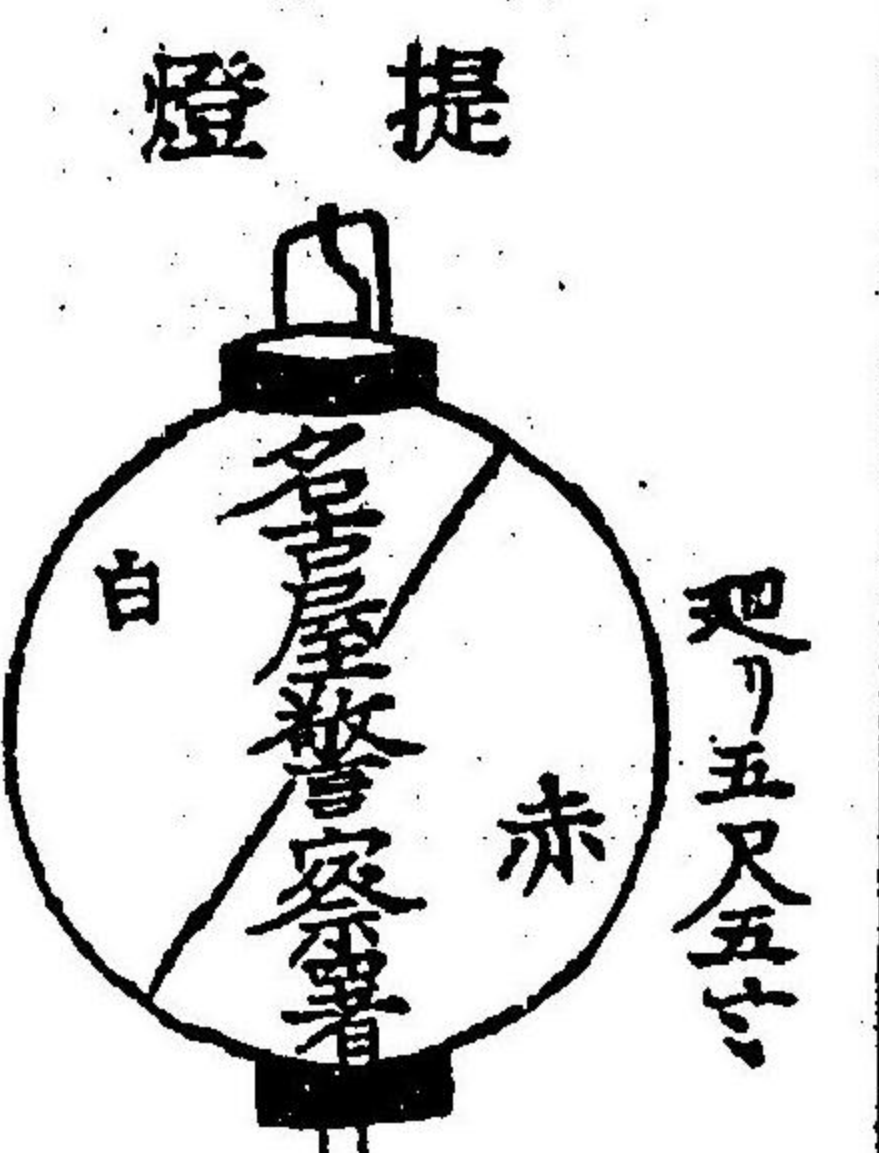 提燈
廻り五尺五寸
名古屋警察署
赤
白